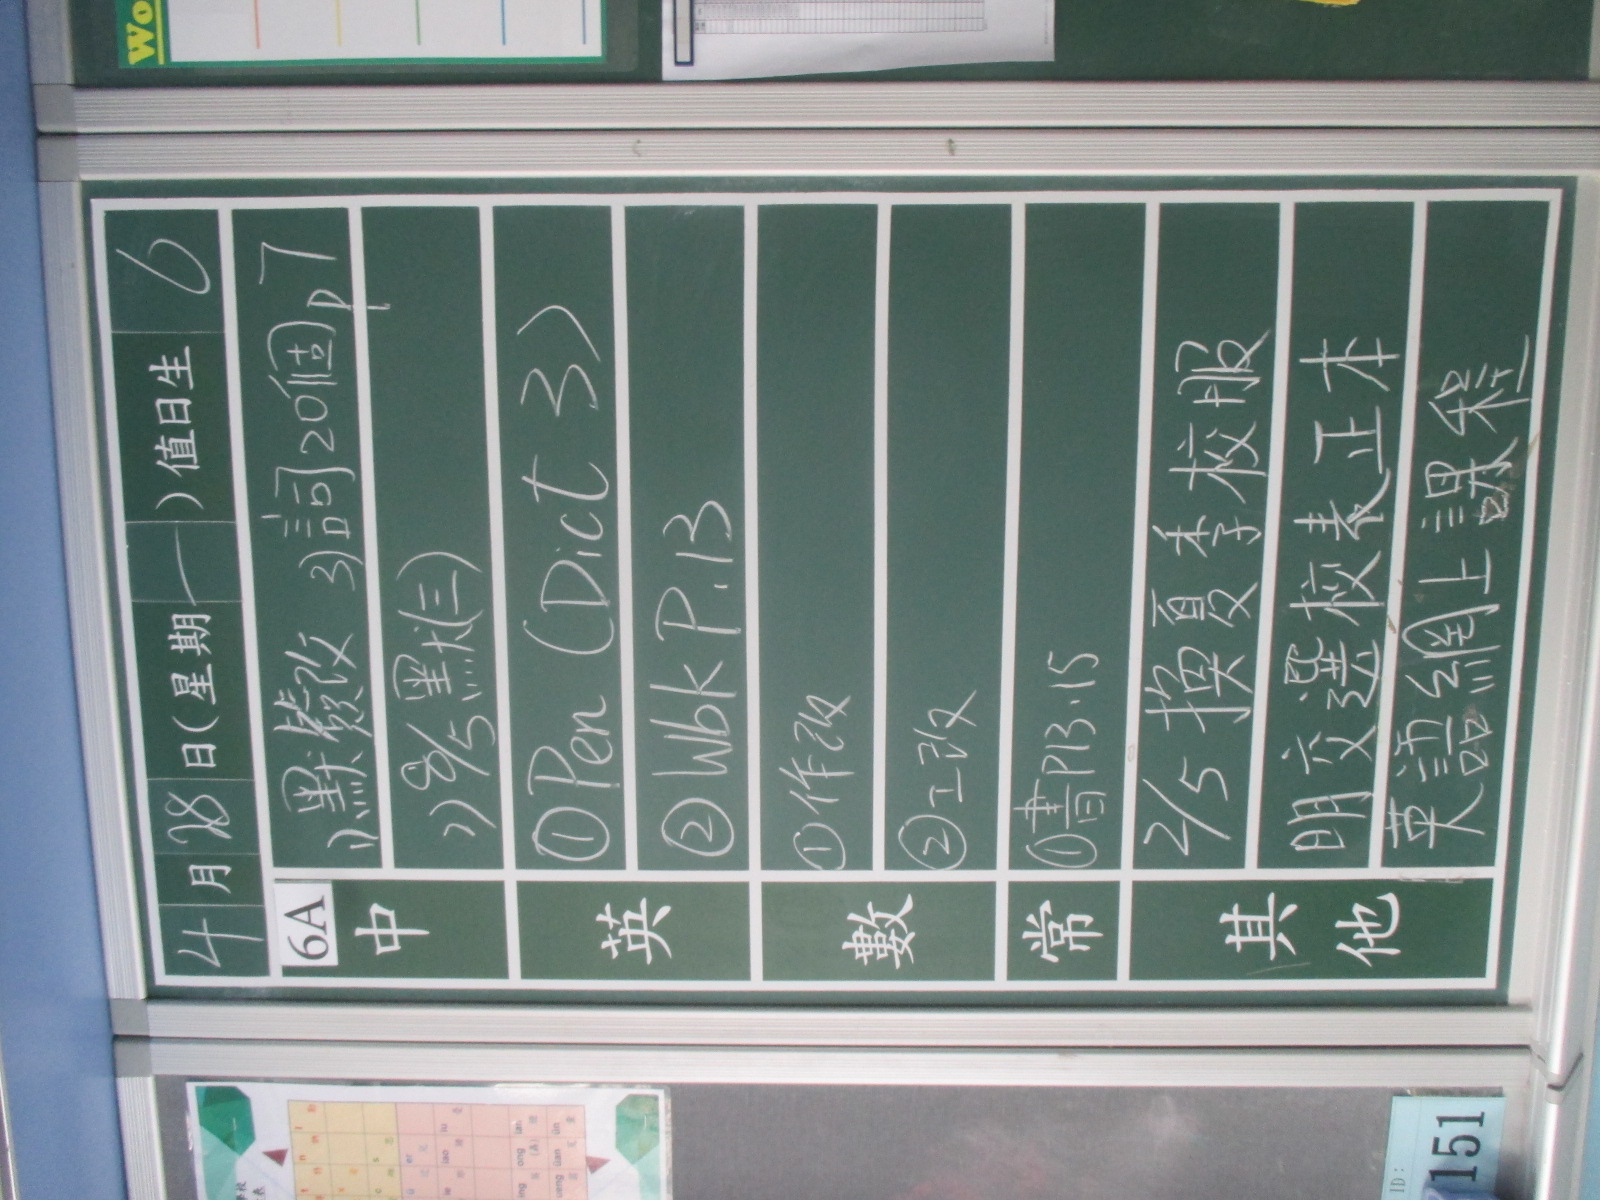 Wo
四月28日(星期一)值日生 6
6A
中
1)默書檢改 3)詞20個 p7
2) 8/5默(三)
英
①Pen (Dict 3)
②Wbk P.13
數
①作改
②工改
常
①書P13.15
其他
2/5換夏季校服
明交選校表正本
英語網上課程
ID:
151